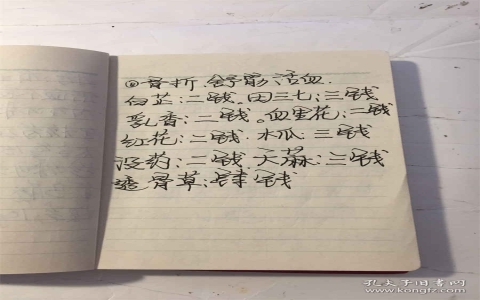 骨折.舒筋.活血.
白芷:二钱.田三七:三钱
乳香:二钱。:二钱
红花:二钱.木瓜:三钱
没药:二钱.天麻:三钱
透骨草:钱
孔夫子旧书网
www.kongfz.com